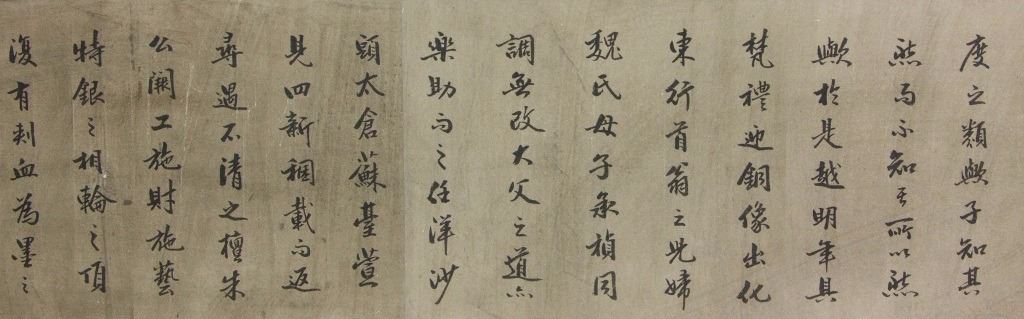 度之類歟子知其
然而不知其所以然
歟於是越明年具
梵禮迎銅像出化
東行首翁之兒婦
魏氏母子承禎同
調無改大父之道亦
樂助而之任洋沙
頭太倉蘇臺萱
見四新稇載而返
尋過不清之檀朱
公工施財施藝
特銀之相輪之頂
復有刺血為墨之